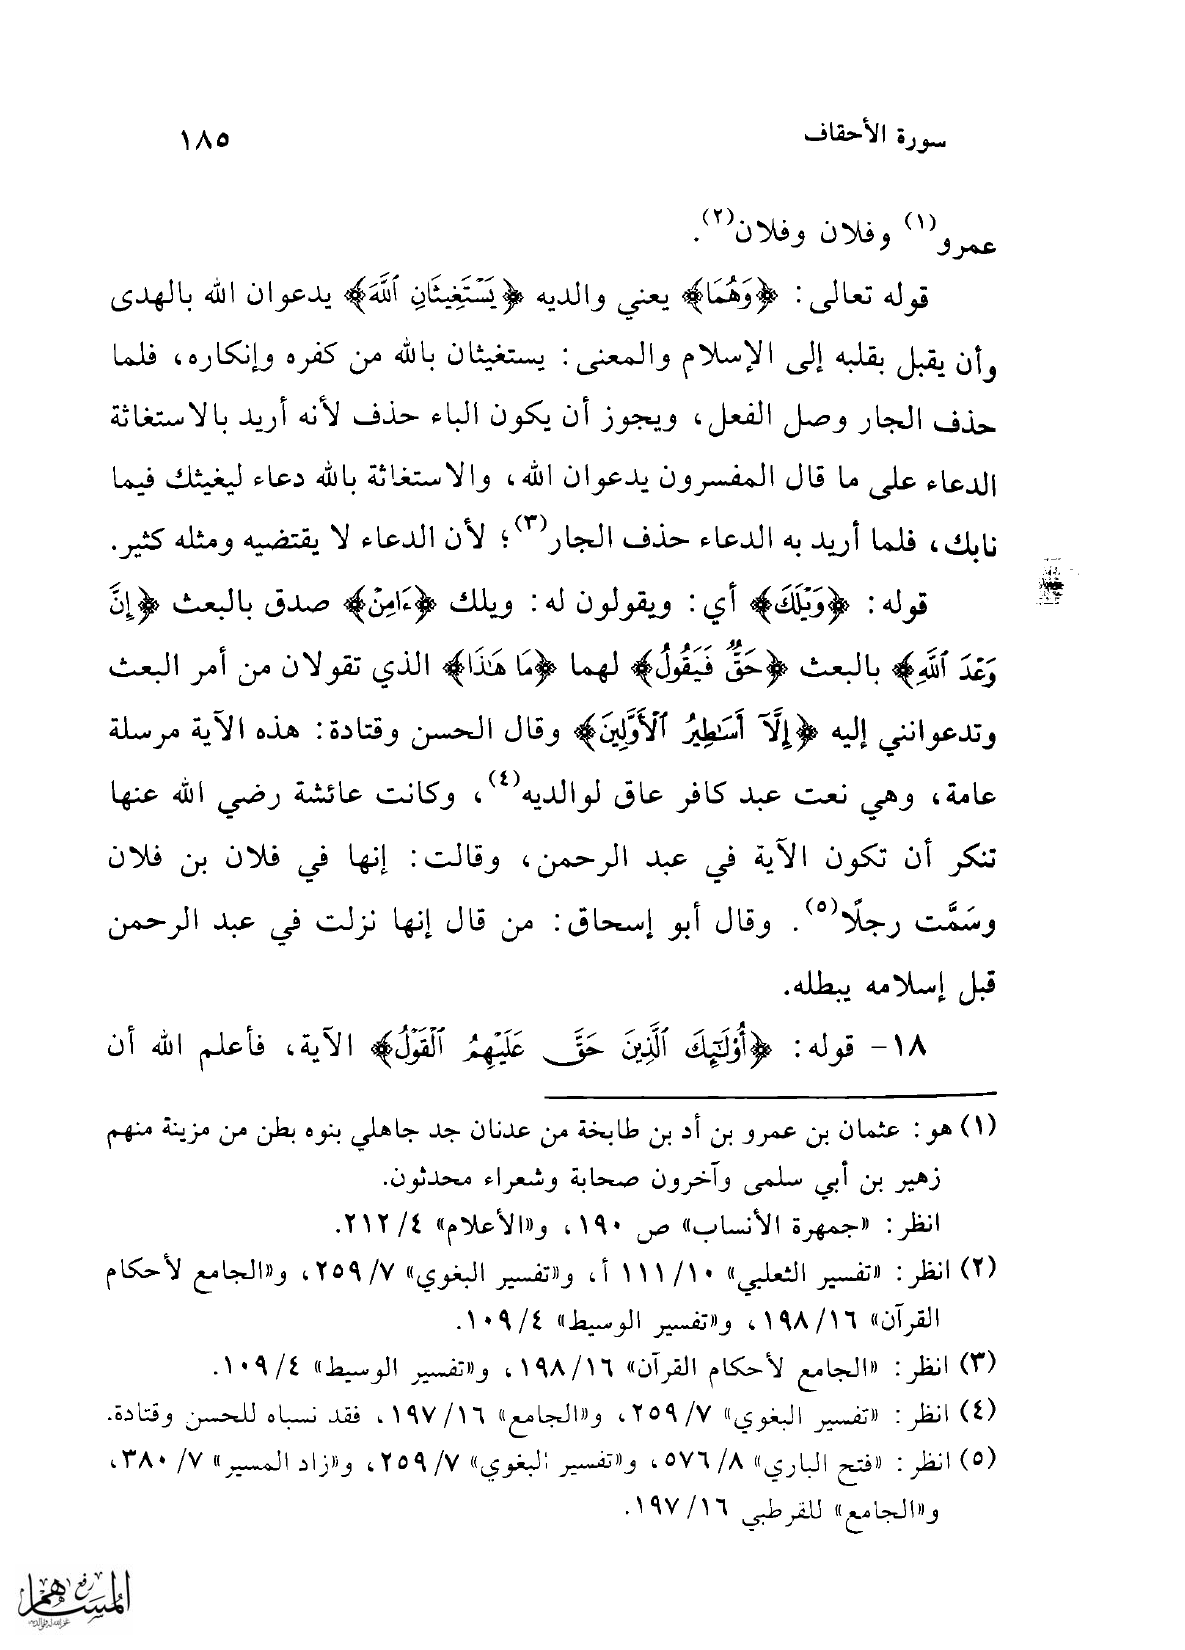 سورة الأحقاف ١٨٥
عمرو(١) وفلان وفلان(٢).
قوله تعالى: ﴿وَهُمَا﴾ يعني والديه ﴿يَسْتَغِيثَانِ ٱللَّهَ﴾ يدعوان الله بالهدى
وأن يقبل بقلبه إلى الإسلام والمعنى: يستغيثان بالله من كفره وإنكاره، فلما
حذف الجار وصل الفعل، ويجوز أن يكون الباء حذف لأنه أريد بالاستغاثة
الدعاء على ما قال المفسرون يدعوان الله، والاستغاثة بالله دعاء ليغيثك فيما
نابك، فلما أريد به الدعاء حذف الجار(٣)؛ لأن الدعاء لا يقتضيه ومثله كثير.
قوله: ﴿وَيْلَكَ﴾ أي: ويقولون له: ويلك ﴿ءَامِنْ﴾ صدق بالبعث ﴿إِنَّ
وَعْدَ ٱللَّهِ﴾ بالبعث ﴿حَقٌّ فَيَقُولُ﴾ لهما ﴿مَا هَٰذَا﴾ الذي تقولان من أمر البعث
وتدعوانني إليه ﴿إِلَّآ أَسَٰطِيرُ ٱلْأَوَّلِينَ﴾ وقال الحسن وقتادة: هذه الآية مرسلة
عامة، وهي نعت عبد كافر عاق لوالديه(٤)، وكانت عائشة رضي الله عنها
تنكر أن تكون الآية في عبد الرحمن، وقالت: إنها في فلان بن فلان
وسَمَّت رجلًا(٥). وقال أبو إسحاق: من قال إنها نزلت في عبد الرحمن
قبل إسلامه يبطله.
١٨- قوله: ﴿أُوْلَٰٓئِكَ ٱلَّذِينَ حَقَّ عَلَيْهِمُ ٱلْقَوْلُ﴾ الآية، فأعلم الله أن
(١) هو: عثمان بن عمرو بن أد بن طابخة من عدنان جد جاهلي بنوه بطن من مزينة منهم
زهير بن أبي سلمى وآخرون صحابة وشعراء محدثون.
انظر: «جمهرة الأنساب» ص ١٩٠، و«الأعلام» ٤/ ٢١٢.
(٢) انظر: «تفسير الثعلبي» ١٠/ ١١١ أ، و«تفسير البغوي» ٧/ ٢٥٩، و«الجامع لأحكام
القرآن» ١٦/ ١٩٨، و«تفسير الوسيط» ٤/ ١٠٩.
(٣) انظر: «الجامع لأحكام القرآن» ١٦/ ١٩٨، و«تفسير الوسيط» ٤/ ١٠٩.
(٤) انظر: «تفسير البغوي» ٧/ ٢٥٩، و«الجامع» ١٦/ ١٩٧، فقد نسباه للحسن وقتادة.
(٥) انظر: «فتح الباري» ٨/ ٥٧٦، و«تفسير البغوي» ٧/ ٢٥٩، و«زاد المسير» ٧/ ٣٨٠،
و«الجامع» للقرطبي ١٦/ ١٩٧.